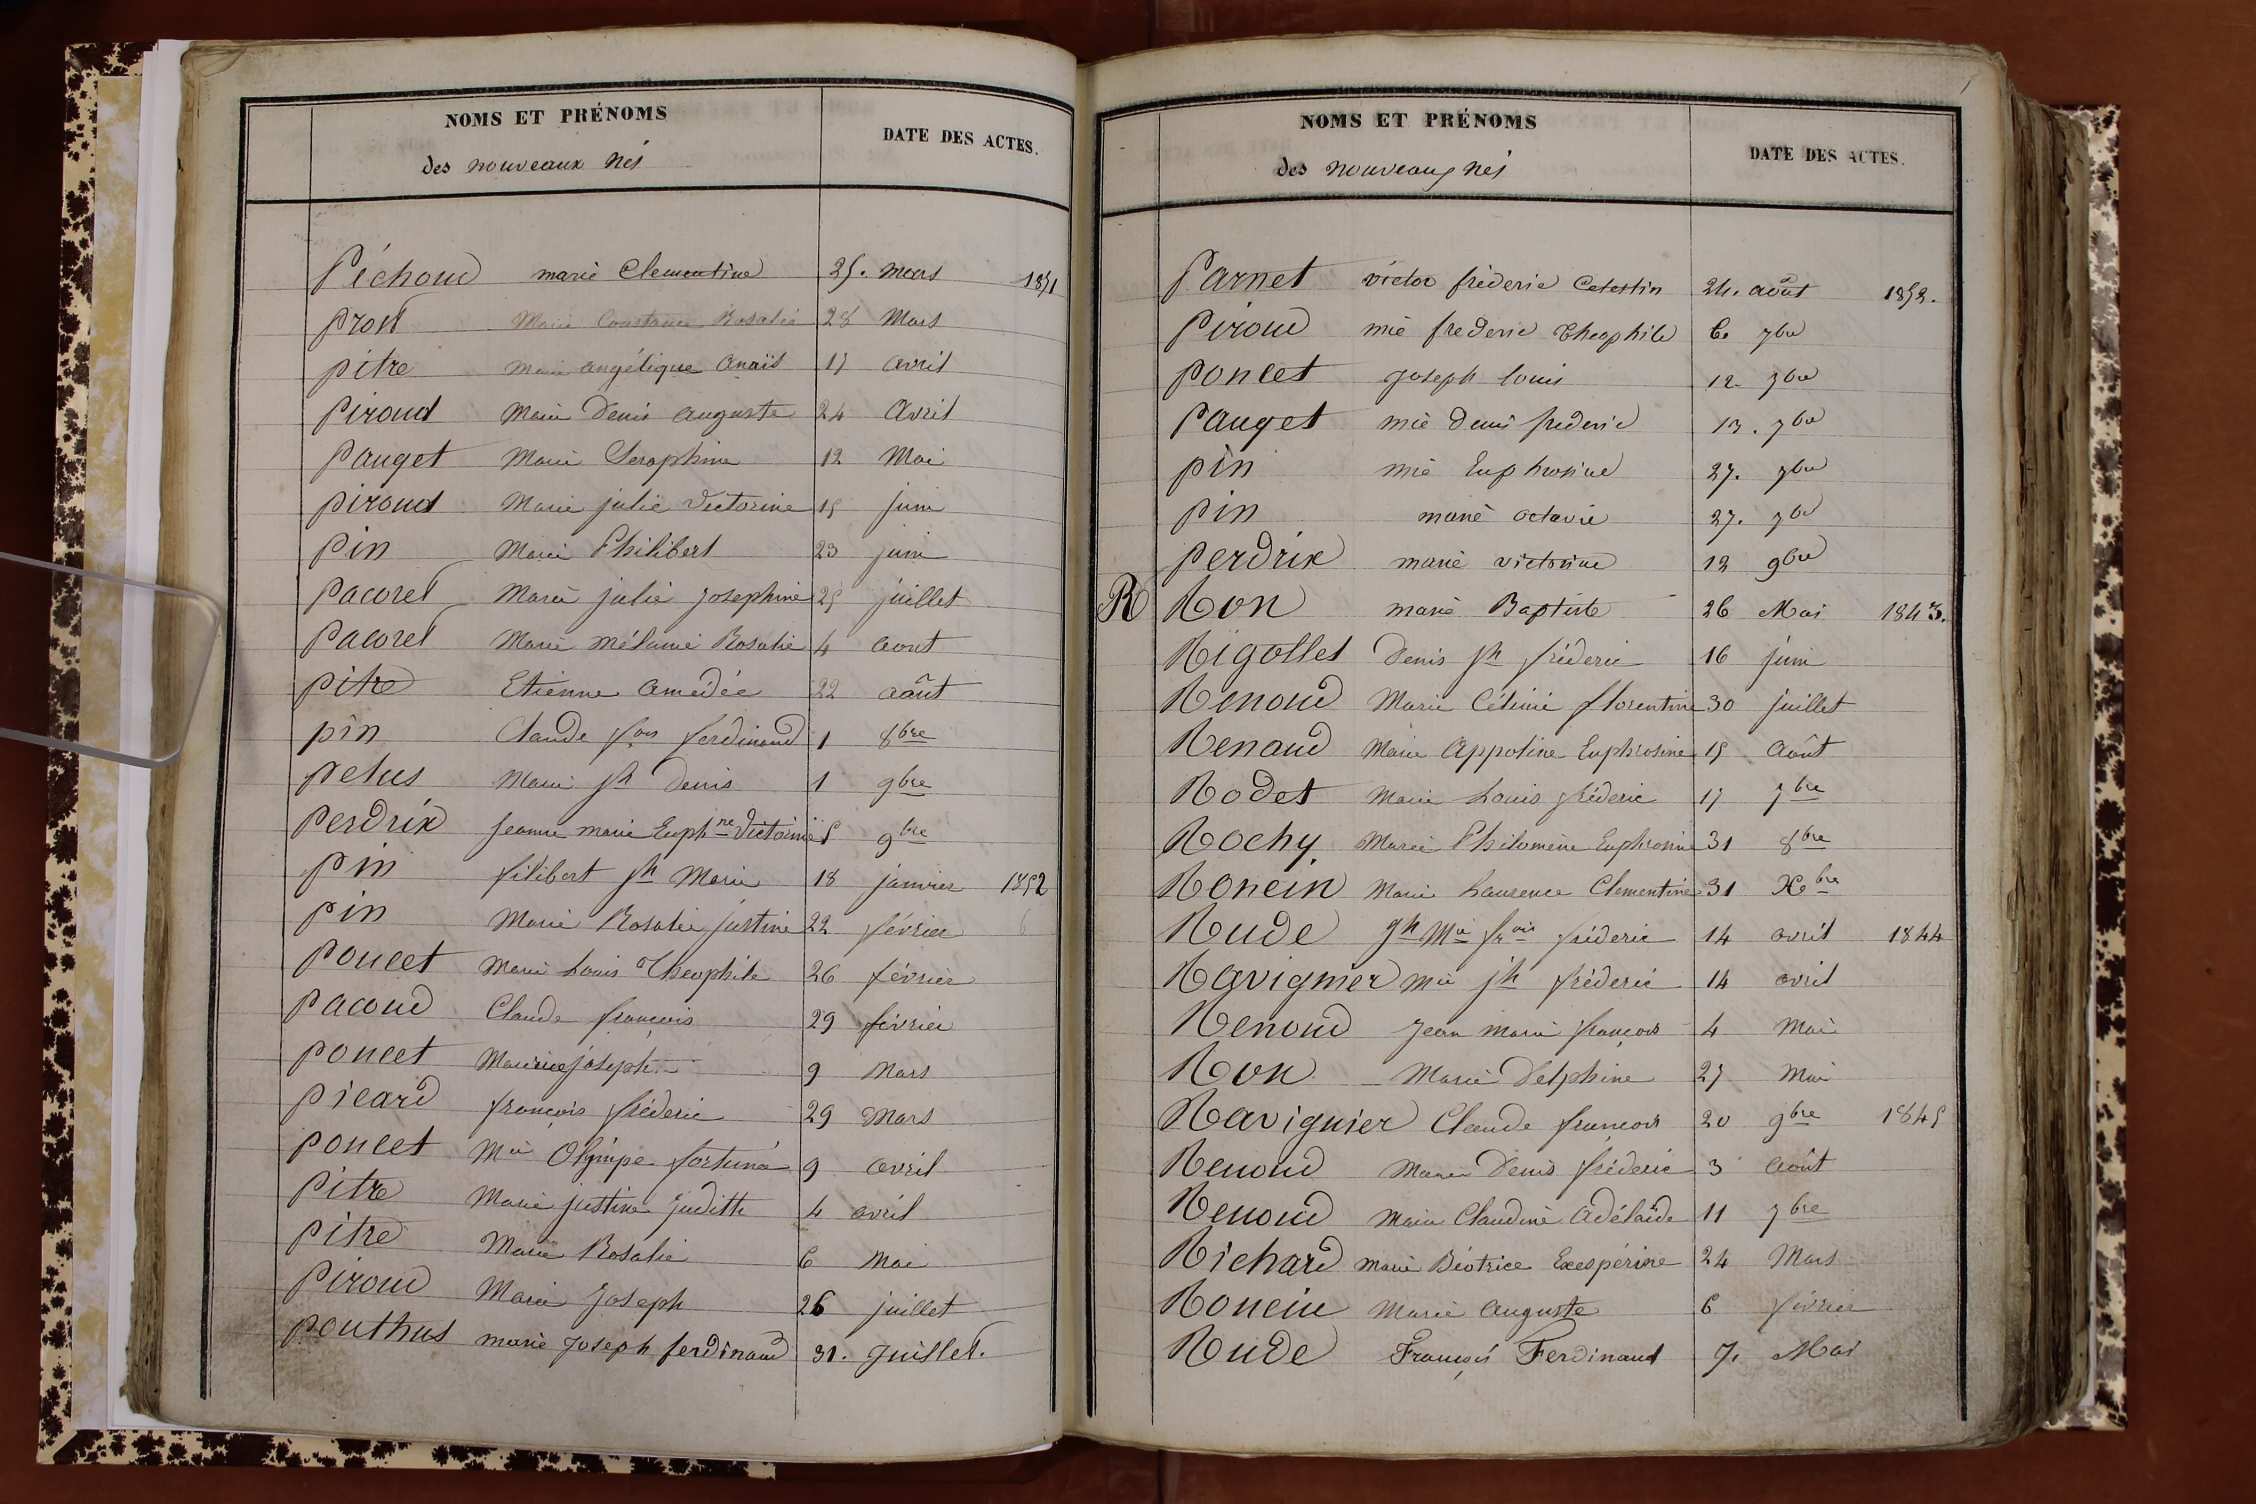 NOMS ET PRÉNOMS
des nouveaux nés
DATE DES ACTES.
Péchoud marie Clementine 25. mars 1851
prost Marie Constance Rosalie 28 Mars
pitre Marie angélique Anaïs 17 avril
piroud Marie Denis auguste 24 Avril
Pauget Marie Seraphine 12 Mai
piroud Marie julie Victorine 15 juin
Pin Marie Philibert 23 juin
Pacoret Marie julie josephine 25 juillet
Pacoret Marie mélanie Rosalie 4 aout
pitre Etienne amédée 22 août
pin Claude fois ferdinand 1 8bre
pelus Marie jh Denis 1 9bre
Perdrix jeanne marie Euphne Victorine 5 9bre
Pin filibert jh Marie 18 janvier 1852
Pin Marie Rosalie justine 22 février
Poncet Marie Louis Theophile 26 février
Pacoud Claude françois 29 février
Poncet Maurice joseph 9 Mars
Picard françois fréderic 29 Mars
Poncet Mie Olÿmpe fortuné 9 avril
Pitre Marie justine juditte 4 avril
Pitre Marie Rosalie 6 Mai
Piroud Marie Joseph 26 juillet
Pouthus marie Joseph ferdinand 31. Juillet.
NOMS ET PRÉNOMS
des nouveaux nés
DATE DES ACTES.
Parnet victor fréderic Celestin 24. août 1852.
Piroud mie frederic Theophile 6. 7bre
Poncet Joseph louis 12. 7bre
Pauget mie denis frederic 13. 7bre
pin mie Euphrosine 27. 7bre
pin marie octavie 27. 7bre
perdrix marie victorine 12 9bre
R Ron marie Baptiste 26 Mai 1843.
Rigollet Denis jh fréderic 16 juin
Renoud Marie Célinie florentine 30 juillet
Renaud Marie Appoline Euphrosine 15 Août
Rodet Marie Louis fréderic 17 7bre
Rochy Marie Philomène Euphrosine 31 8bre
Roncin Marie Laurence Clementine 31 Xbre
Rude jh Mie fois fréderic 14 avril 1844
Ravignier Mie jh fréderic 14 avril
Renoud Jean marie françois 4 Mai
Ron Marie Delphine 27 Mai
Ravignier Claude françois 20 9bre 1845
Renoud Marie Denis fréderic 3 Août
Renoud Marie Claudine Adélaïde 11 7bre
Richard marie Béotrice Exespérine 24 Mars
Roncin Marie Auguste 6 février
Rude François Ferdinand 7. Mai